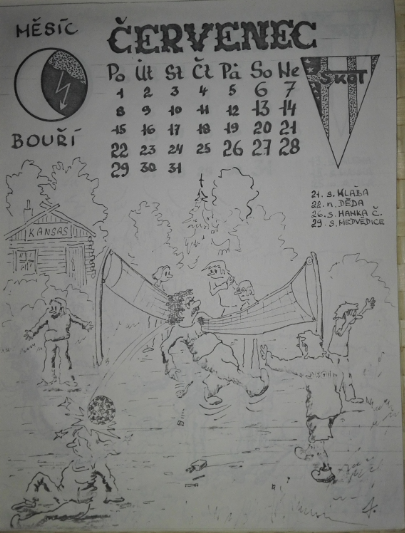 MĚSÍC
BOUŘÍ
ČERVENEC
Po Út St Čt Pá So Ne
1 2 3 4 5 6 7
8 9 10 11 12 13 14
15 16 17 18 19 20 21
22 23 24 25 26 27 28
29 30 31
SKAT
21. S. KLÁĎA
22. N. DĚDA
26. S. HANKA Č.
29. S. MEDVĚDICE
KANSAS